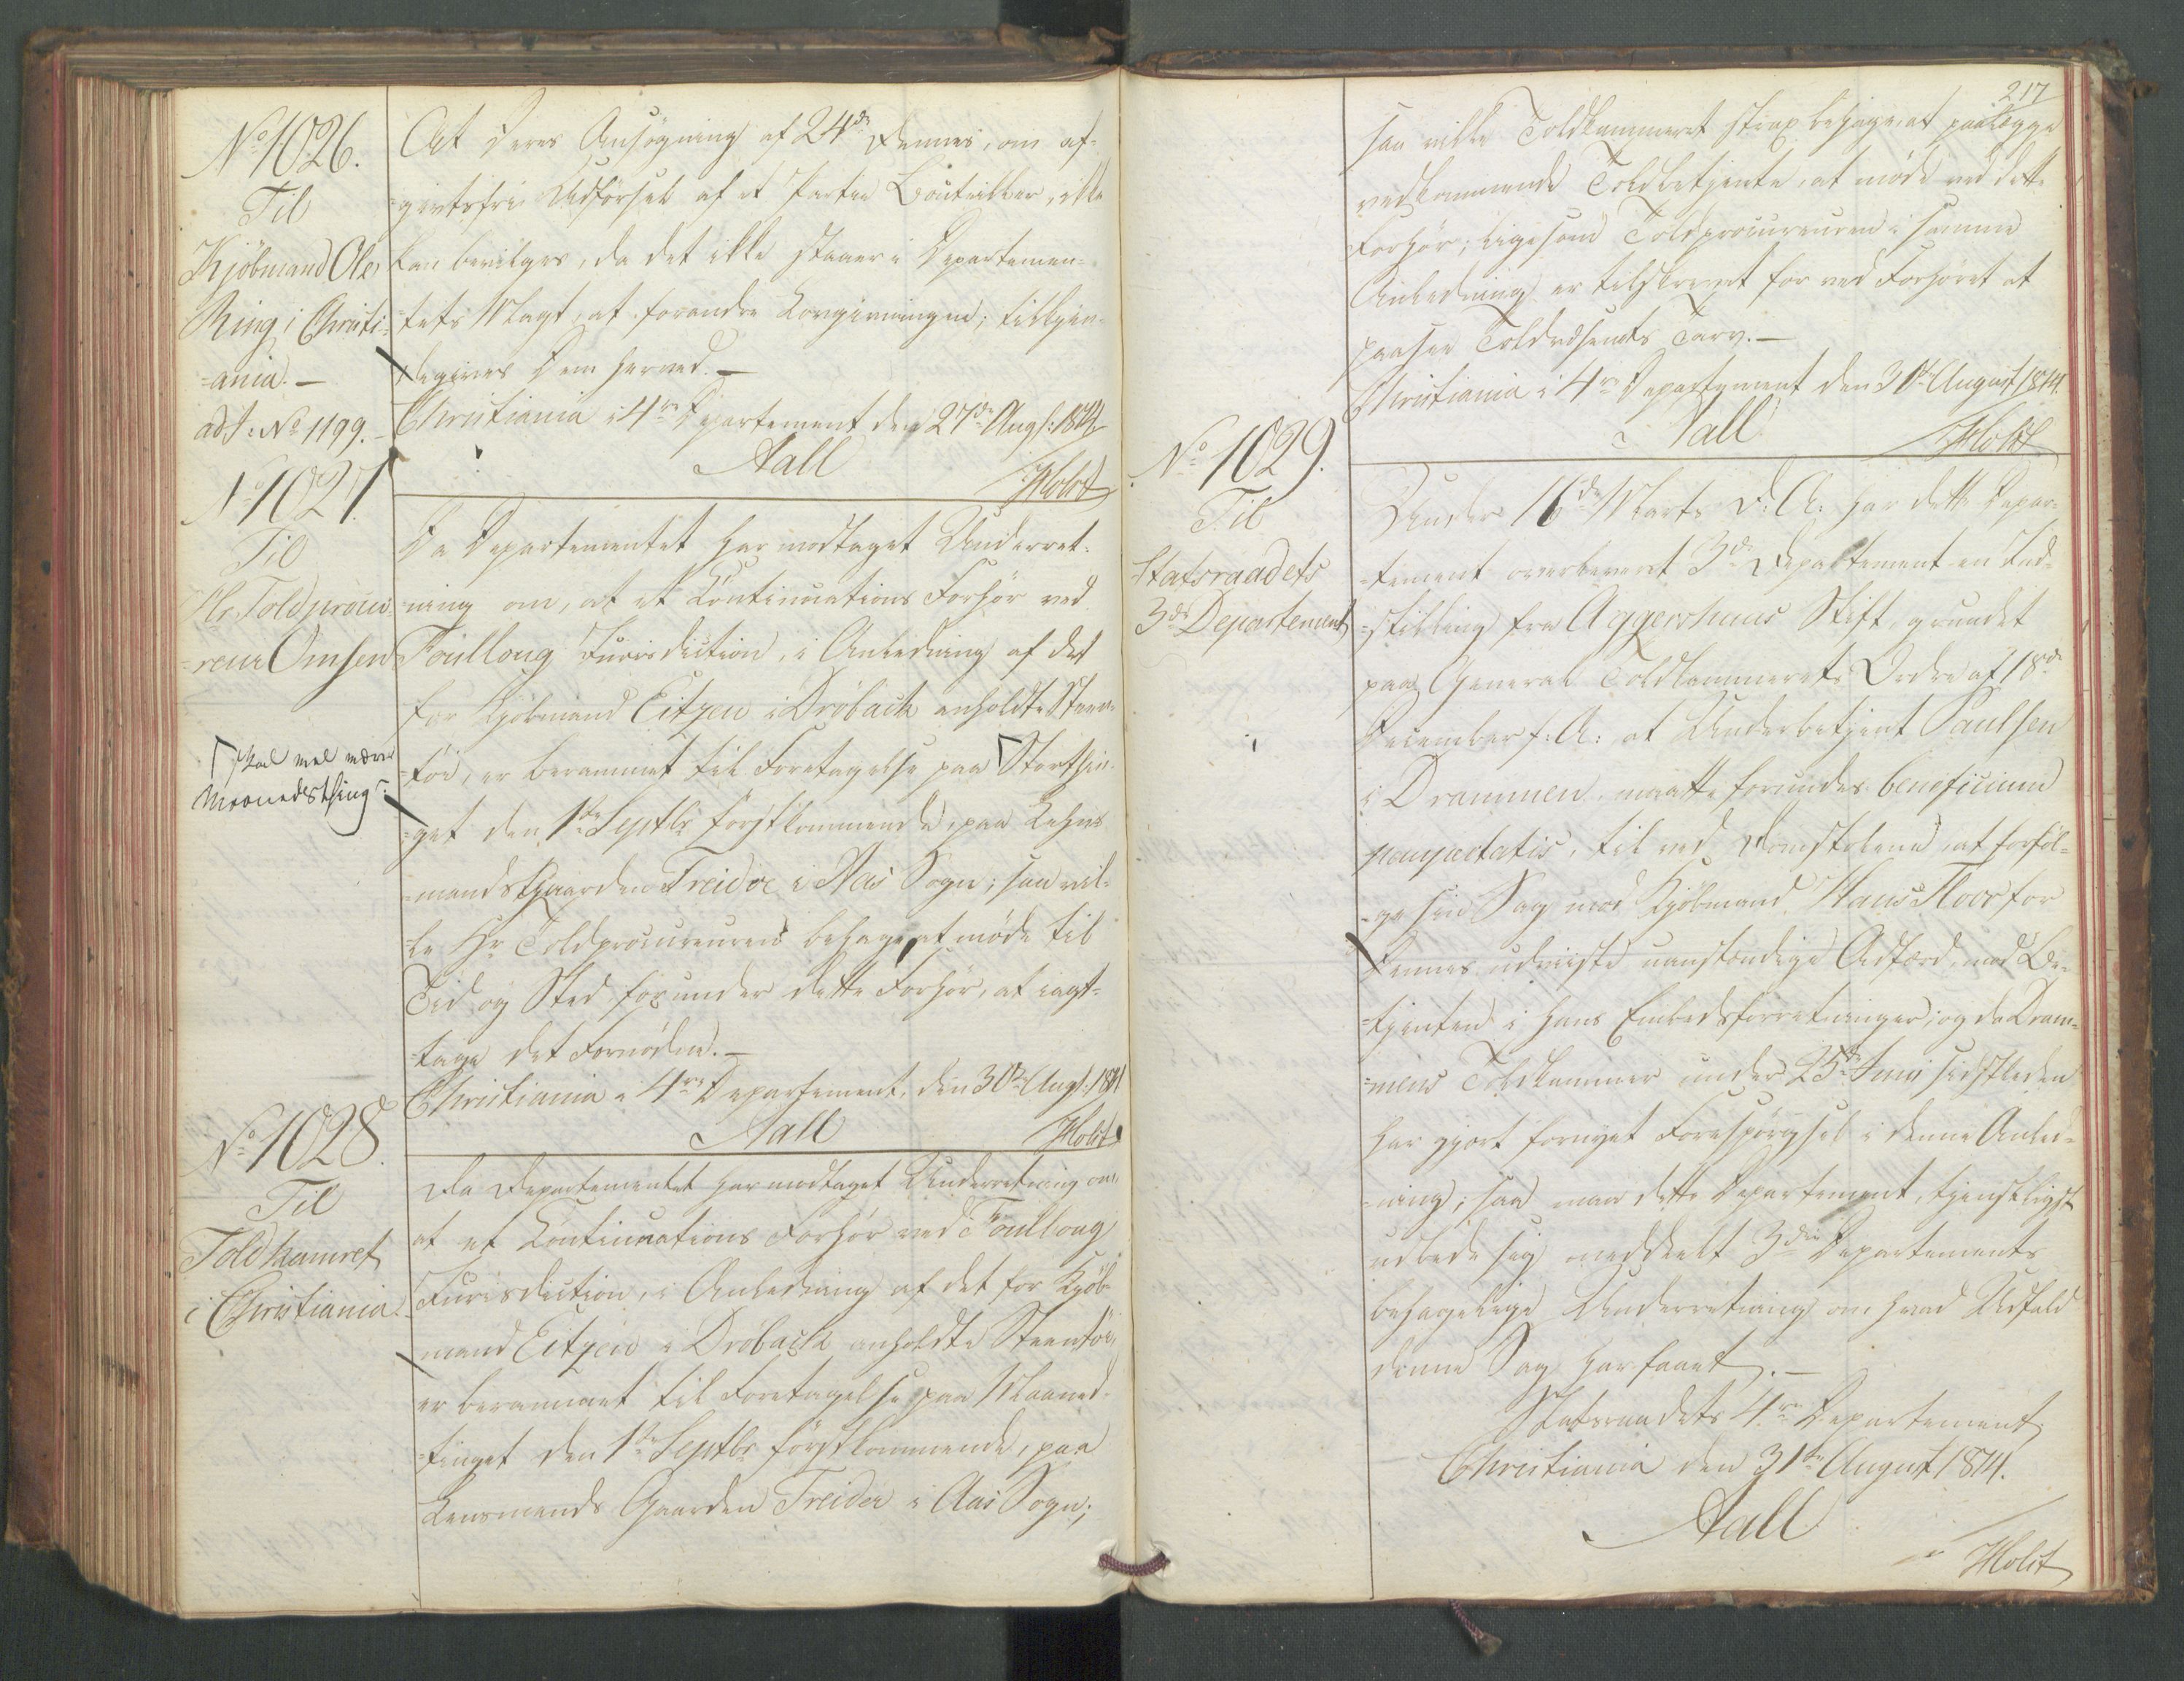 No 1026.
Til
Kjöbmand Ole
Ring i Christi-
=ania. —
adJ: No 1199. —
At Deres Ansögning af 24de Dennes, om af-
=giftsfri Udförsel af et Partie Bouteiller, ikke
kan bevilges, da det ikke staaer i Departemen-
=tets Magt, at forandre Lovgivningen; tilkjen-
degives Dem herved. —
Christiania i 4re Departement den 27de Augs: 1814.
Aall
Holst
No 1027.
Til
Hr. Toldprocu-
=reur Omsen
Da Departementet har modtaget Underret-
=ning om, at et Continuations Forhör ved
Foulloug Jurisdiction, i Anledning af det
for Kjöbmand Eitzen i Dröback anholdte Steen-
=töi, er berammet til Foretagelse paa Storthin-
=get den 1ste Septbr förstkommende, paa Lehns-
=mandsgaarden Treider i Aas Sogn; saa vil-
=le Hr Toldprocureuren behage, at möde til
Tid og Sted, for under dette Forhör, at iagt-
=tage det Fornödne. —
Christiania i 4re Departement, den 30te Augs: 1814
Aall
Holst
skal vel være
Maanedsthing?
No 1028.
Til
Toldkamret
i Christiania.
Da Departementet har modtaget Underretning om,
at et Continuations Forhör ved Foulloug
Jurisdiction, i Anledning af det for Kjöb-
mand Eitzen i Dröback anholdte Steentöi,
er berammet til Foretagelse paa Maaned-
=tinget den 1ste Septbr förstkommende, paa
Lensmands Gaarden Treider i Aas Sogn;
217
saa ville Toldkammeret strax behage, at paalægge
vedkommende Toldbetjente, at möde ved dette
Forhör; ligesom Toldprocureuren i samme
Anledning er tilskrevet for ved Forhöret at
paasee Toldvæsenets Tarv. —
Christiania i 4re Departement den 31te August 1814.
Aall
Holst
No 1029.
Til
Statsraadets
3die Departement
Under 16de Marts d: A: har dette Depar-
=tement overleveret 3die Departement en Ind-
=stilling fra Aggershuus Stift, grundet
paa General Toldkammerets Ordre af 18de
December f: A: at Underbetjent Paulsen
i Drammen, maatte forundes beneficium
paupertatis, til ved Domstolene, at forföl-
-ge sin Sag mod Kjöbmand Hans Floor for
Dennes udviiste uanstændige Adfærd, mod Be-
=tjenten i hans Embedsforretninger; og da Dram-
=mens Toldkammer under 25de Juni sidstleden
har gjort fornyet Forespörgsel i denne Anled-
=ning; saa maa dette Departement, tjenstligst
udbede sig meddeelt 3die Departements
behagelige Underretning om hvad Udfald
denne Sag har faaet. —
Statsraadets 4re Departement
Christiania den 31te August 1814.
Aall
Holst